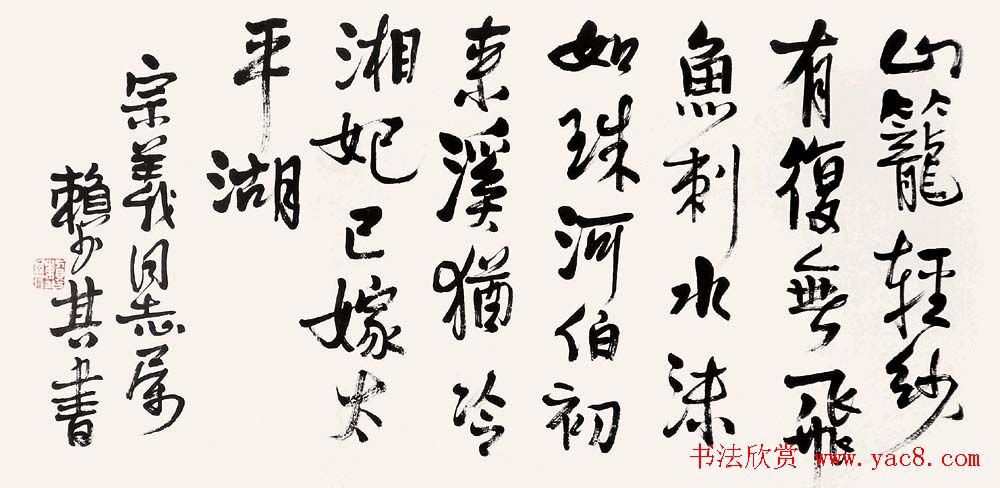 山籠輕紗
有復無飛
魚刺水沫
如珠河伯初
来溪猶冷
湘妃已嫁太
平湖
宗義同志属
賴少其書
书法欣赏 www.yac8.com